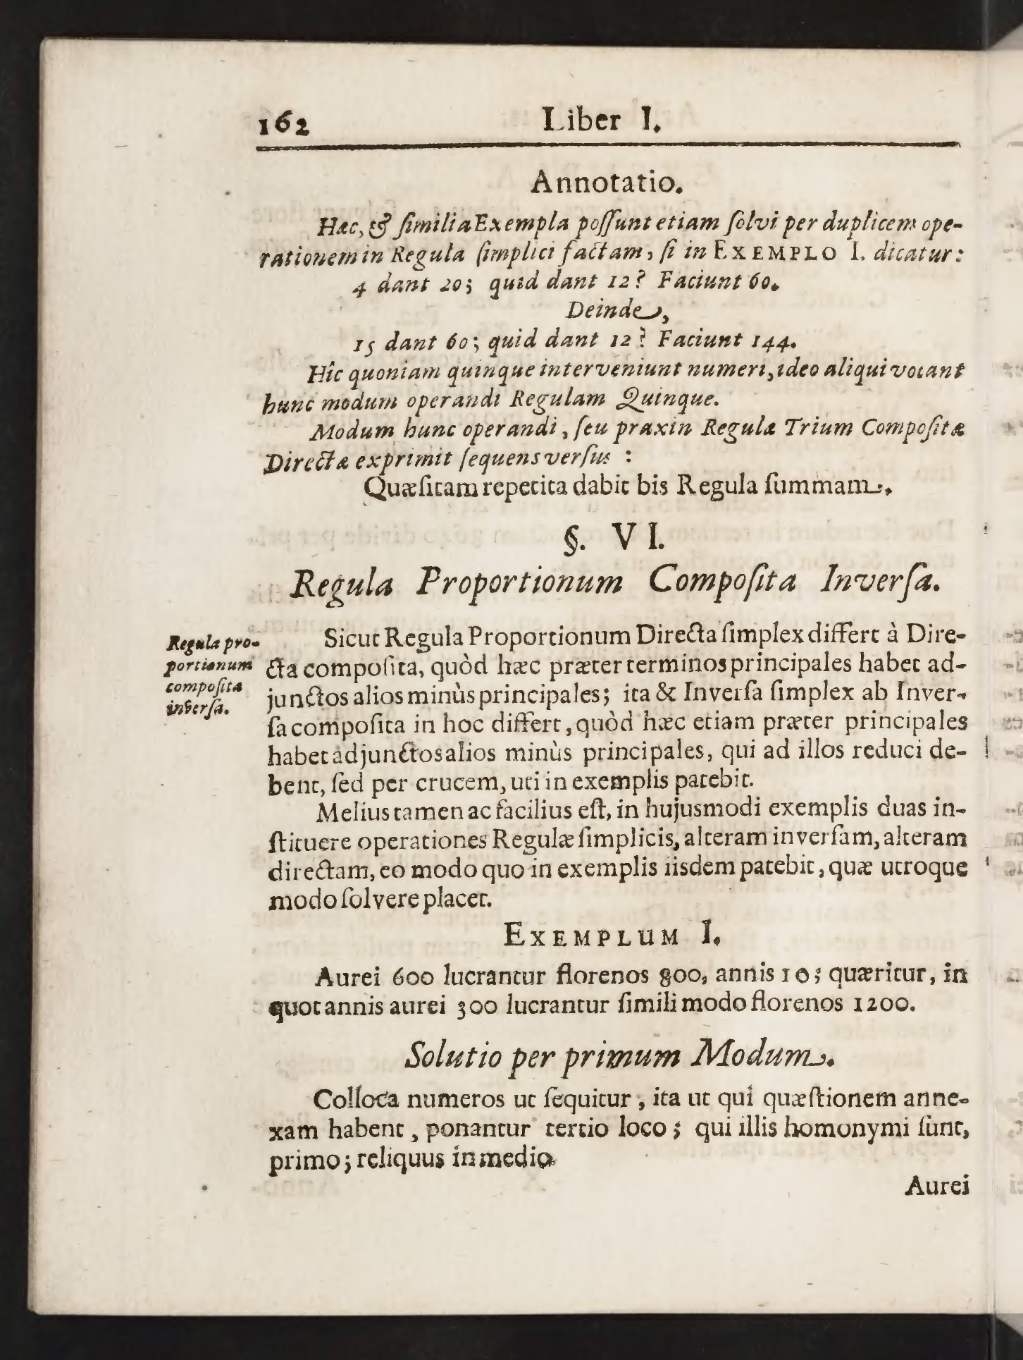 162 Liber I.
Annotatio.
Hæc, & ſimilia Exempla poſſunt etiam ſolvi per duplicem ope-
rationem in Regula ſimplici factam, ſi in EXEMPLO I. dicatur:
4 dant 20; quid dant 12? Faciunt 60.
Deinde,
15 dant 60; quid dant 12? Faciunt 144.
Hîc quoniam quinque interveniunt numeri, ideo aliqui vocant
hunc modum operandi Regulam Quinque.
Modum hunc operandi, ſeu praxin Regulæ Trium Compoſitæ
Directæ exprimit ſequens verſus:
Quæſitam repetita dabit bis Regula ſummam.
§. VI.
Regula Proportionum Compoſita Inverſa.
Regula pro-
portionum
compoſita
inverſa.
Sicut Regula Proportionum Directa ſimplex differt à Dire-
cta compoſita, quòd hæc præter terminos principales habet ad-
junctos alios minùs principales; ita & Inverſa ſimplex ab Inver-
ſa compoſita in hoc differt, quòd hæc etiam præter principales
habet adjunctos alios minùs principales, qui ad illos reduci de-
bent, ſed per crucem, uti in exemplis patebit.
Melius tamen ac facilius eſt, in hujusmodi exemplis duas in-
ſtituere operationes Regulæ ſimplicis, alteram inverſam, alteram
directam, eo modo quo in exemplis iisdem patebit, quæ utroque
modo ſolvere placet.
EXEMPLUM I.
Aurei 600 lucrantur florenos 800, annis 10; quæritur, in
quot annis aurei 300 lucrantur ſimili modo florenos 1200.
Solutio per primum Modum.
Colloca numeros ut ſequitur, ita ut qui quæſtionem anne-
xam habent, ponantur tertio loco; qui illis homonymi ſunt,
primo; reliquus in medio.
Aurei